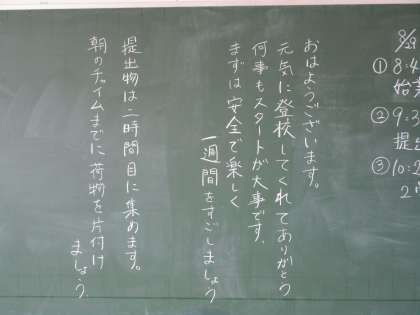 おはようございます。
元気に登校してくれてありがとう
何事もスタートが大事です.
まずは安全で楽しく
一週間をすごしましょう
提出物は二時間目に集めます。
朝のチャイムまでに荷物を片付け
ましょう.
8/29
① 8:4
始業
② 9:3
提出
③ 10:2